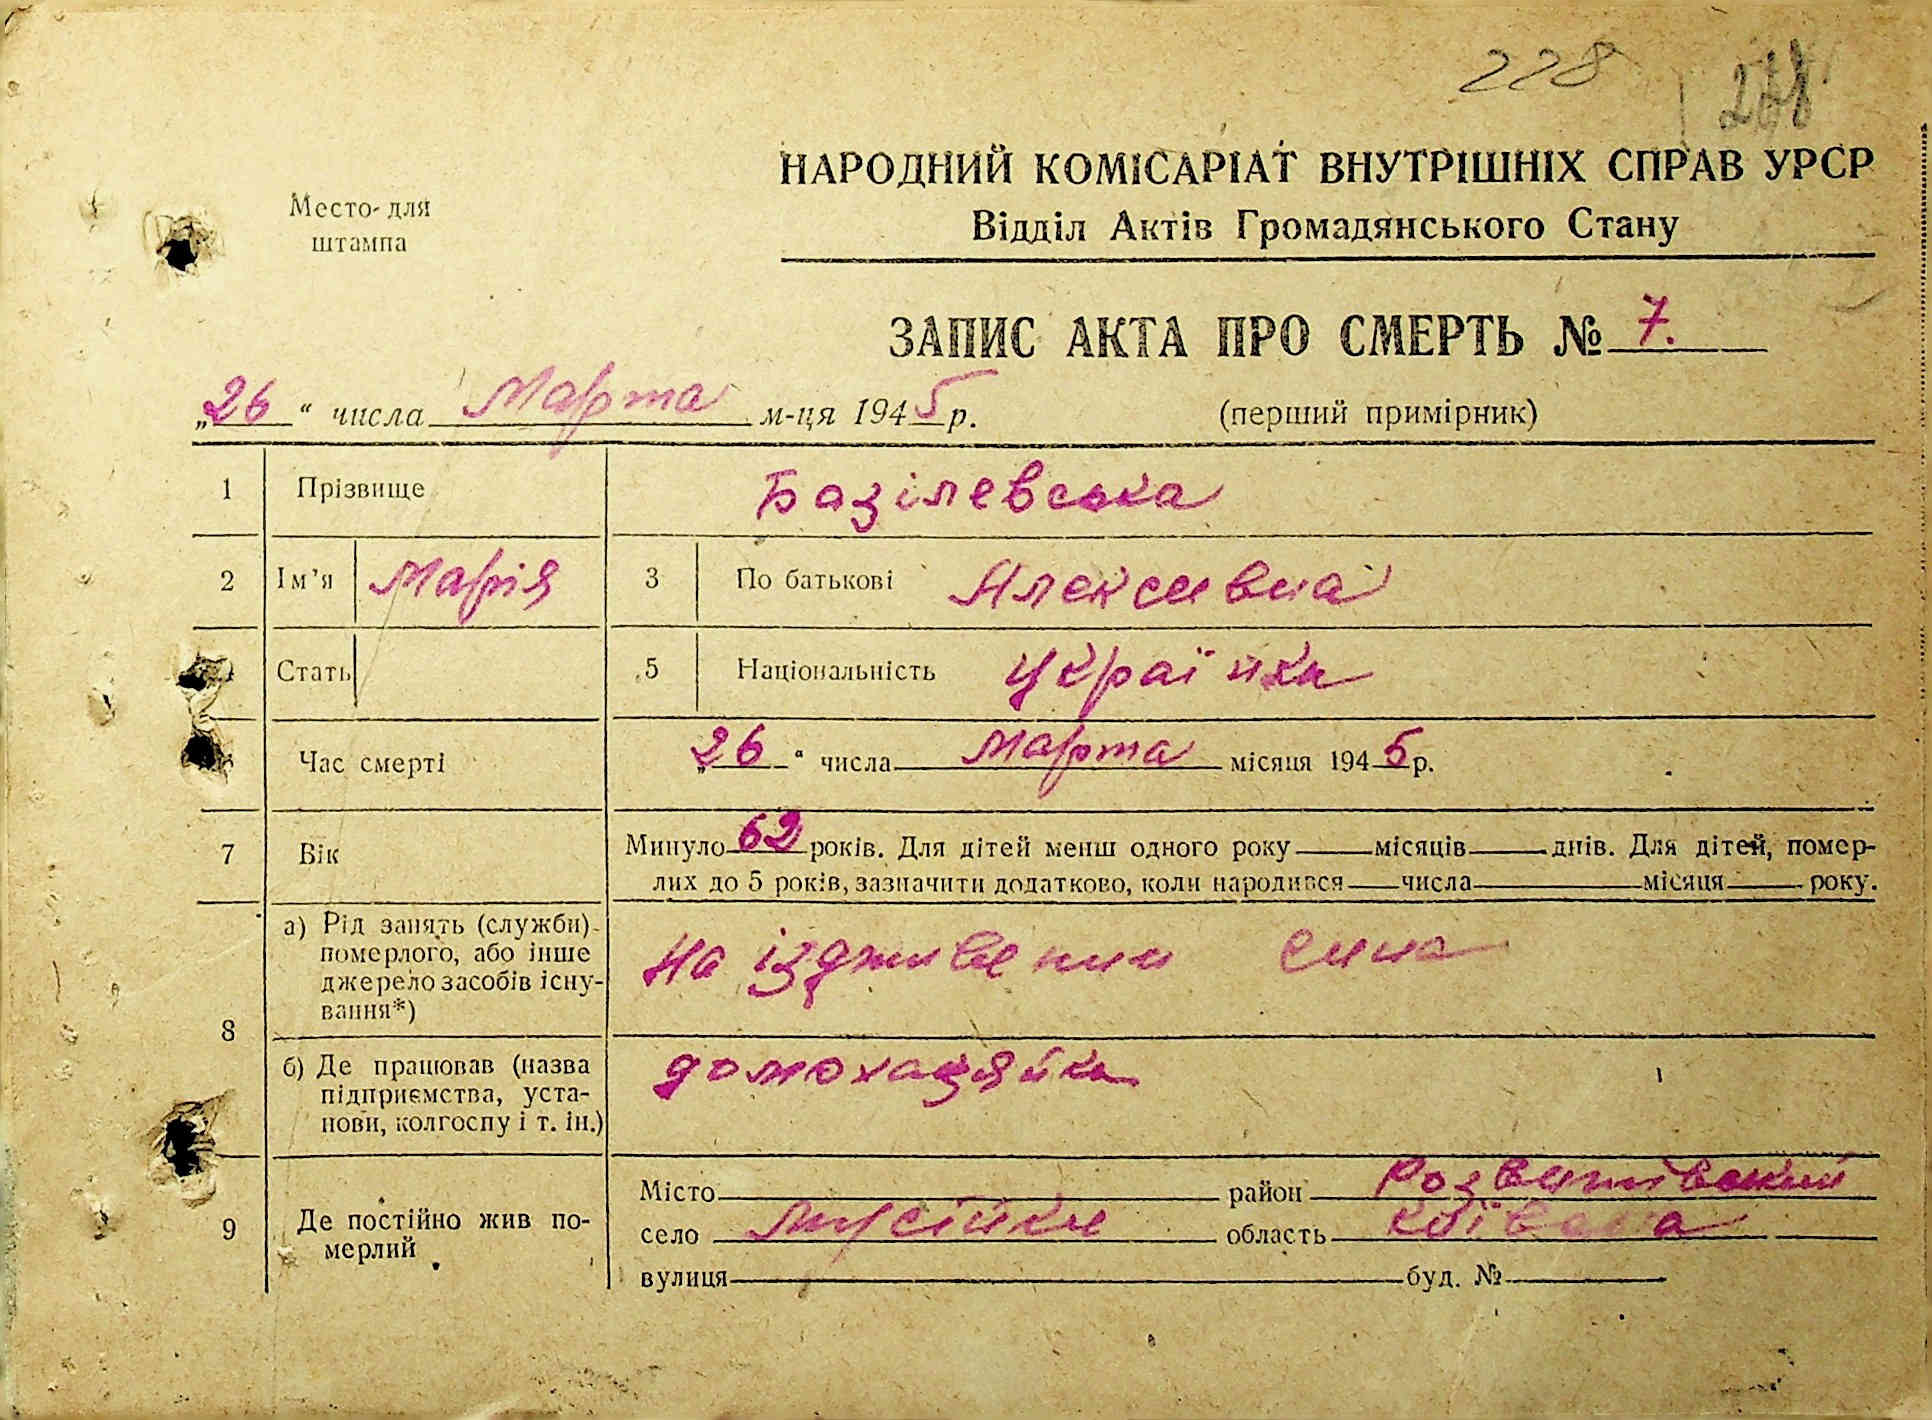 228
НАРОДНИЙ КОМІСАРІАТ ВНУТРІШНІХ СПРАВ УРСР
Место для
штампа
Відділ Актів Громадянського Стану
ЗАПИС АКТА ПРО СМЕРТЬ № 7.
„26“ числа Марта м-ця 1945 р.
(перший примірник)
1 Прізвище Базілевська
2 Ім’я Марія 3 По батькові Алексивна
Стать 5 Національність Українка
Час смерті „26“ числа марта місяця 1945 р.
7 Вік Минуло 62 років. Для дітей менш одного року місяців днів. Для дітей, помер-
лих до 5 років, зазначити додатково, коли народився числа місяця року.
8
а) Рід занять (служби) померлого, або інше джерело засобів існу-вання*) На іздживении сина
б) Де працював (назва підприємства, уста-нови, колгоспу і т. ін.) домохазяйка
9 Де постійно жив по-мерлий
Місто район Розважівский
село Мусійки область Київська
вулиця буд. №